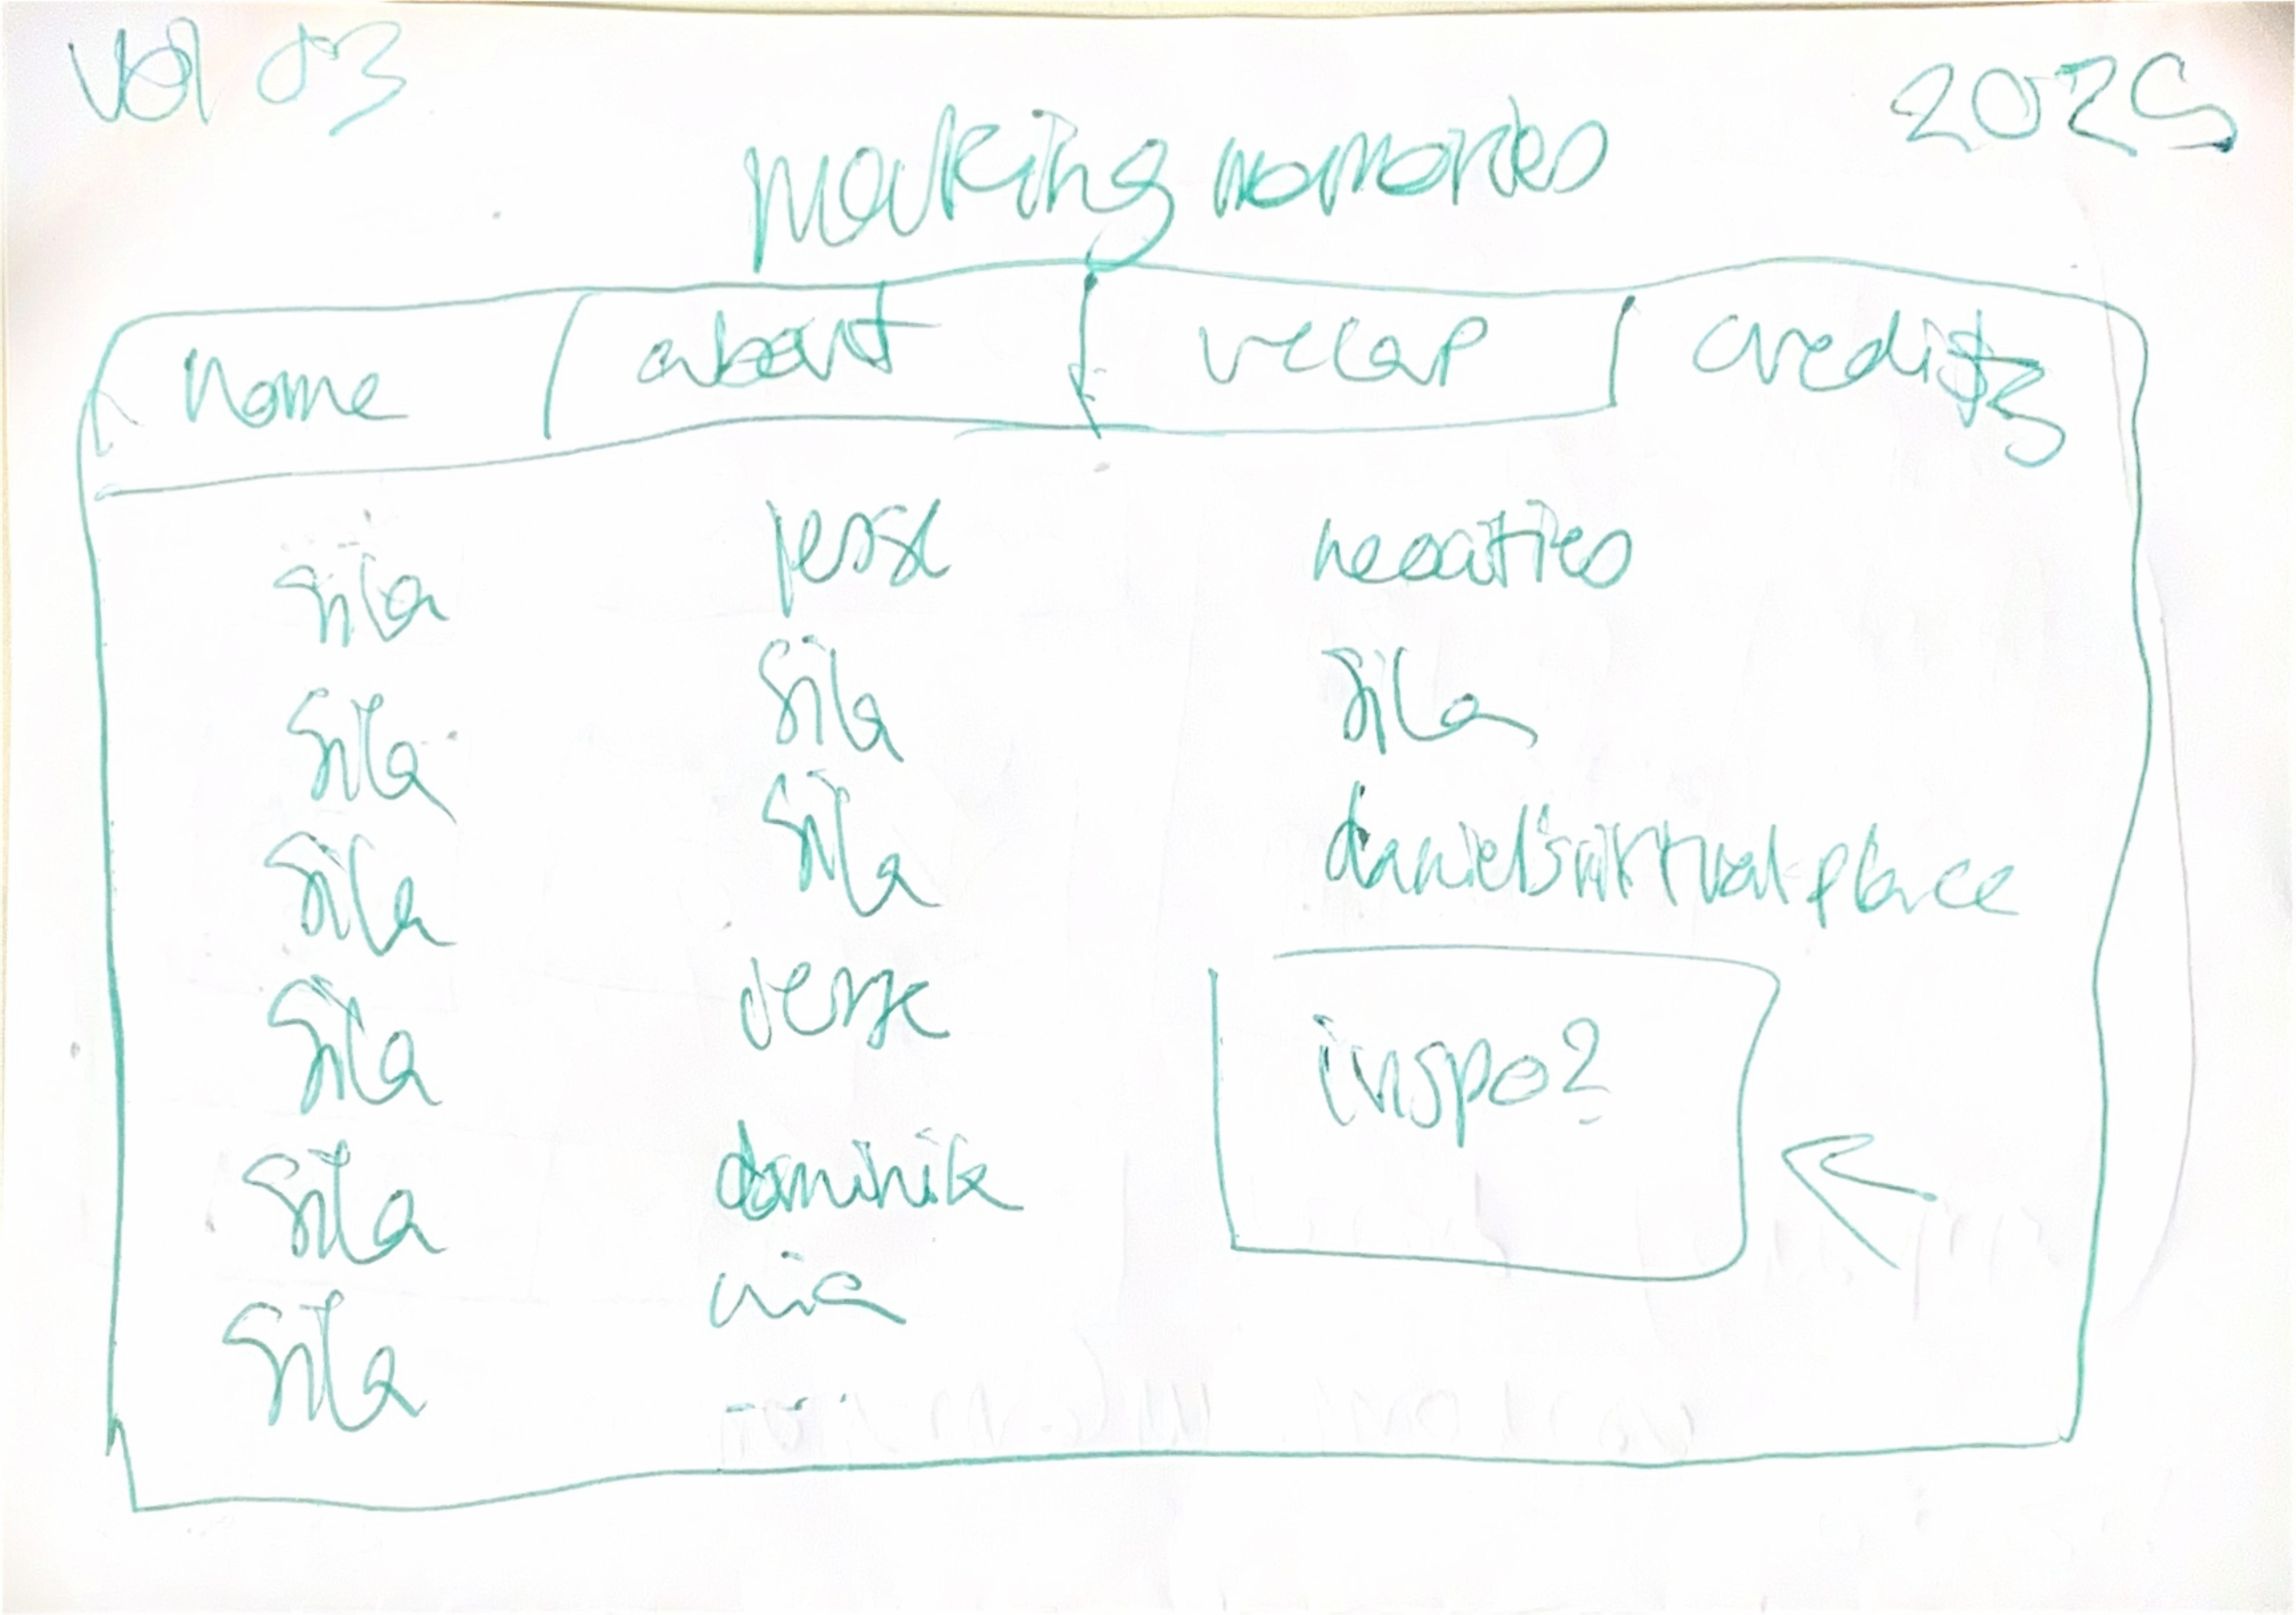 vol 03
2025
making memories
home about recap credits
sila
sila
sila
sila
sila
sila
sila
sila
dominik
mia
....
sila
daniel's virtual place
inspo?